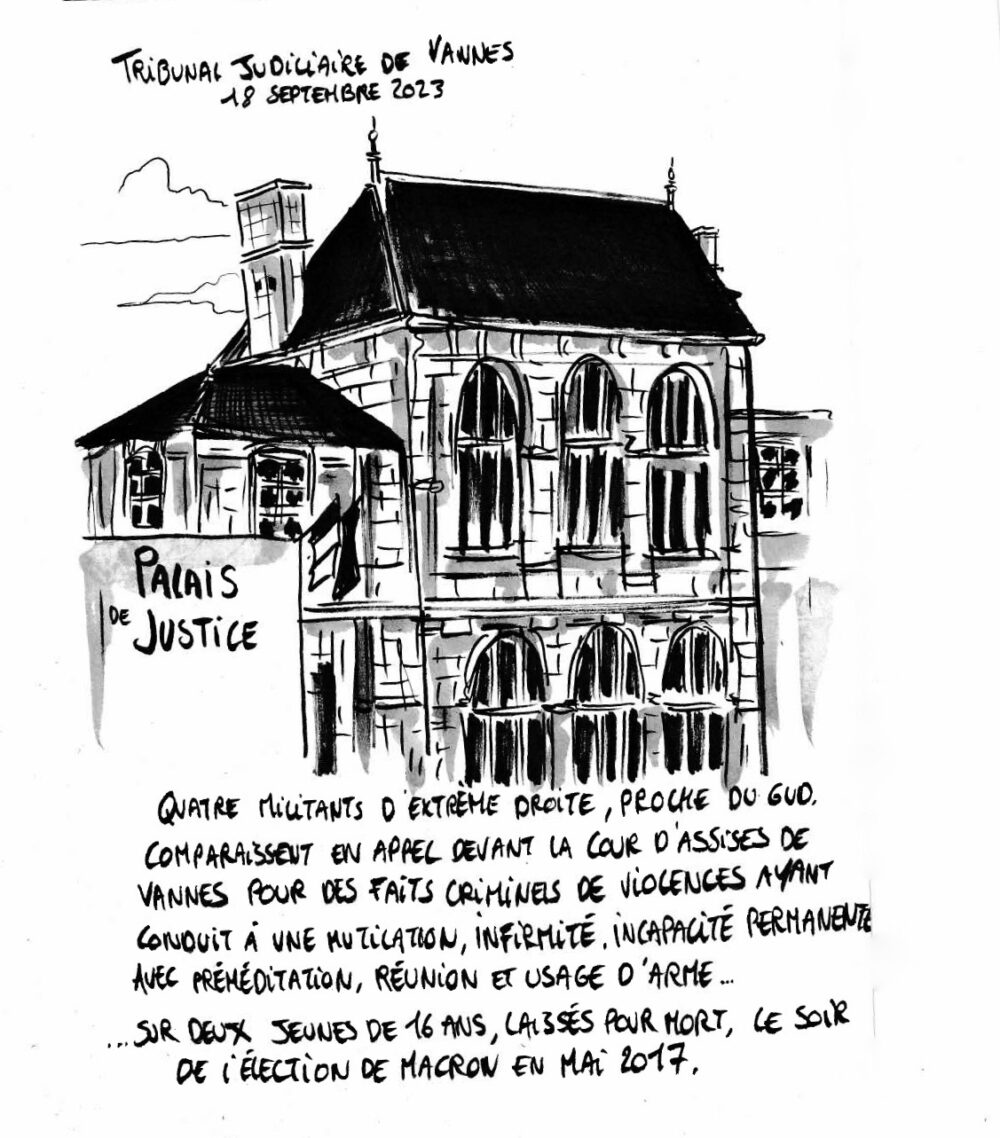 TRIBUNAL JUDICIAIRE DE VANNES
18 SEPTEMBRE 2023
PALAIS
DE JUSTICE
QUATRE MILITANTS D'EXTRÈME DROITE, PROCHE DU GUD.
COMPARAISSENT EN APPEL DEVANT LA COUR D'ASSISES DE
VANNES POUR DES FAITS CRIMINELS DE VIOLENCES AYANT
CONDUIT À UNE MUTILATION, INFIRMITÉ, INCAPACITÉ PERMANENTE
AVEC PRÉMÉDITATION, RÉUNION ET USAGE D'ARME...
...SUR DEUX JEUNES DE 16 ANS, LAISSÉS POUR MORT, LE SOIR
DE L'ÉLECTION DE MACRON EN MAI 2017.